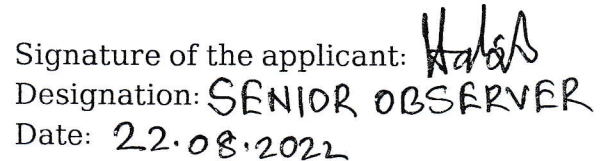 Signature of the applicant:
Designation: SENIOR OBSERVER
Date: 22.08.2022